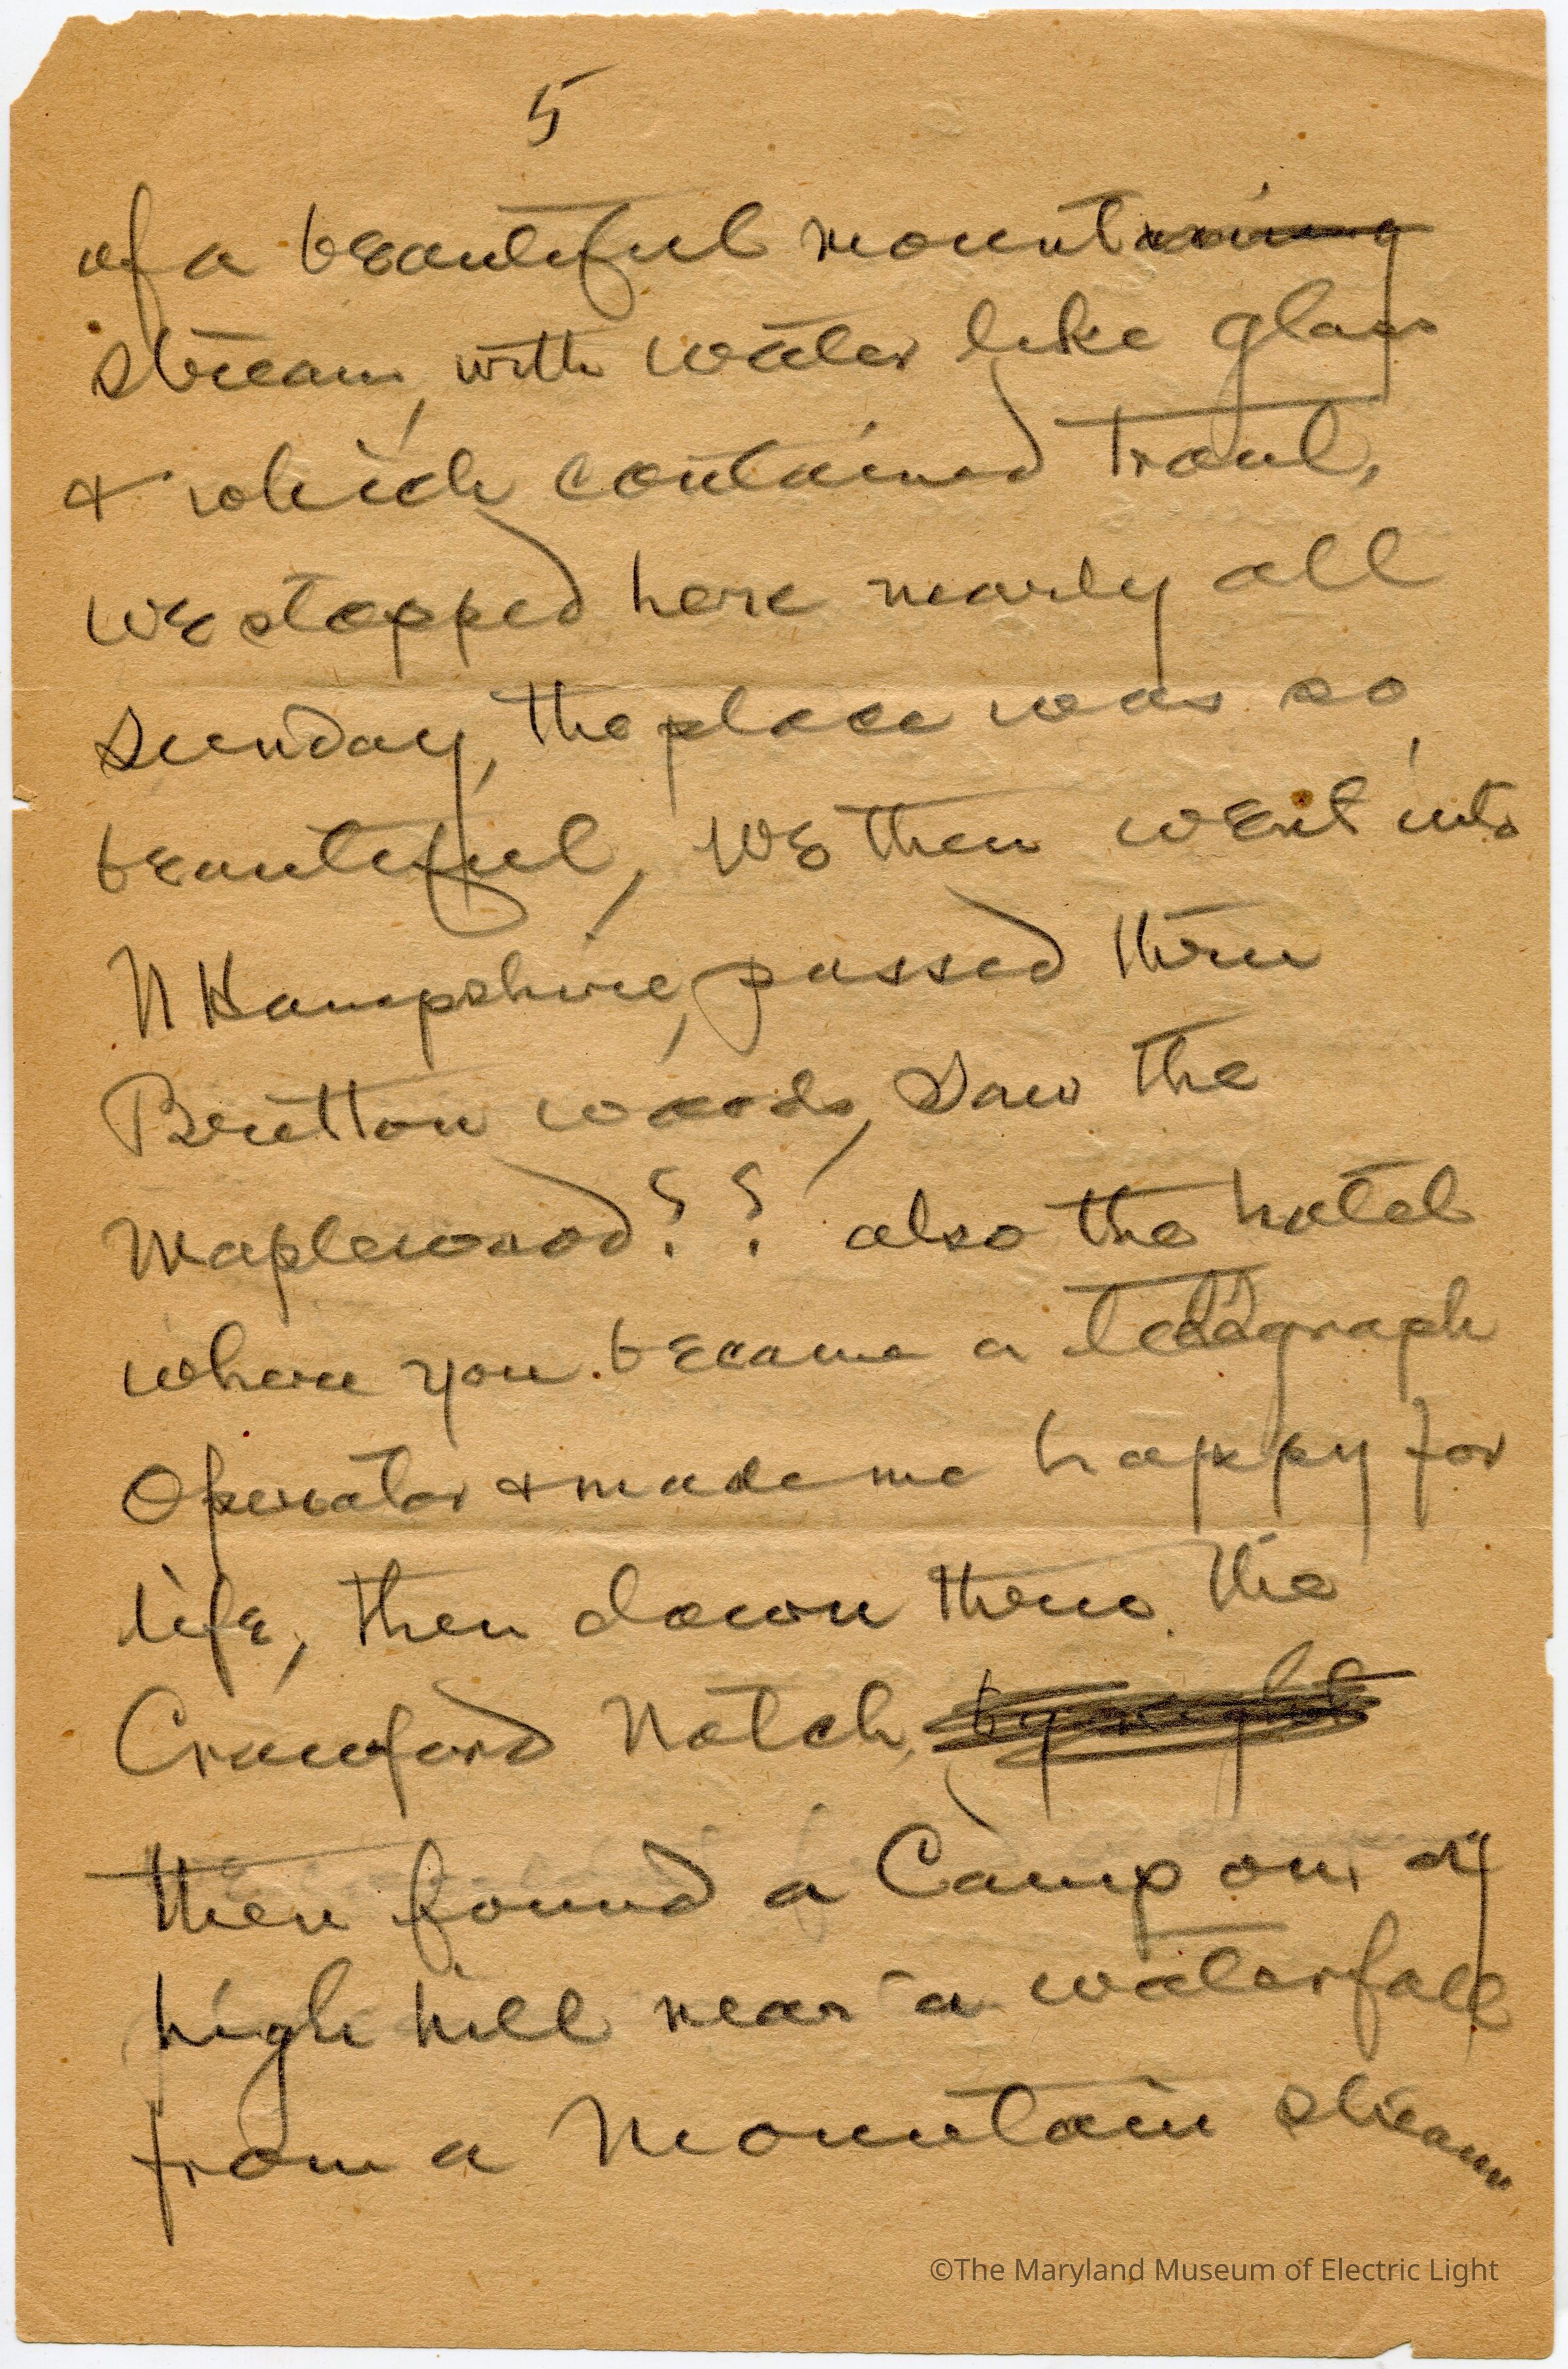 5
of a beautiful mount
stream, with water like glass
& which contained trout,
we stopped here nearly all
Sunday, the place was so
beautiful, we then went into
N Hampshire, passed thru
Bretton woods, saw the
Maplewood?? also the hotel
where you became a telegraph
operator & made me happy for
life, then down thru the
Crawford Notch,
then found a Camp on a
high hill near a waterfall
from a Mountain stream
©The Maryland Museum of Electric Light